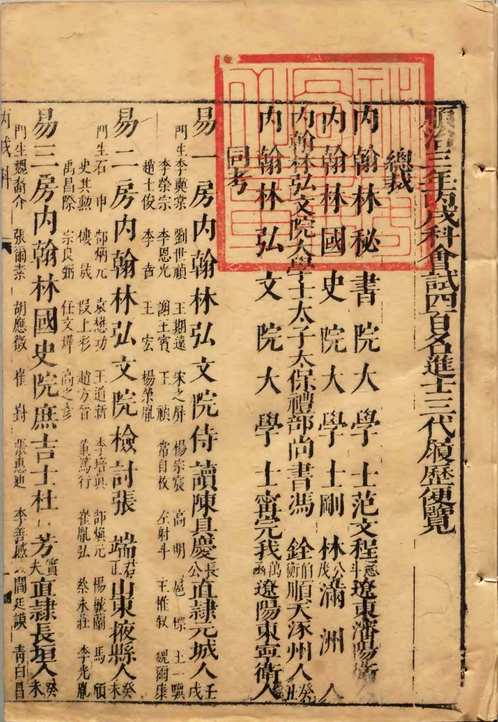 順治三年丙戌科會試四百名進士三代履歷便覽
總裁
內翰林秘書院大學士范文程 遼東瀋陽衛人
內翰林國史院大學士剛林 滿洲人
內翰林弘文院大學士太子太保禮部尚書馮銓 順天涿州人
內翰林弘文院大學士甯完我 萬涵 遼陽東寧衛人
同考
易一房內翰林弘文院侍讀陳具慶 長公 直隸元城人 壬戌
門生 李奭棠 劉世禎 王期遠 宋之屏 楊宗宸 高明
李榮宗 李思光 謝王賓 王禎 常自牧 左射斗 王惟叙 魏爾康
趙士俊 李盲 王宏 楊榮胤
易二房內翰林弘文院檢討張端 山東掖縣人 癸未
門生 石申 郜炳元 袁懋功 王道新 李培真 郜煥元 楊毓蘭 馬顧
史其勲 傻晟 段上彩 趙方晋 董篤行 崔胤弘 蔡永莊 李光胤
禹昌際 宗良弼 任文曄 高之彥
易三房內翰林國史院庶吉士杜芳 直隸長垣人 癸未
門生 魏裔介 張爾素 胡應徵 崔對 張惠迪 李善 閻廷謨 青白昌
丙戌科